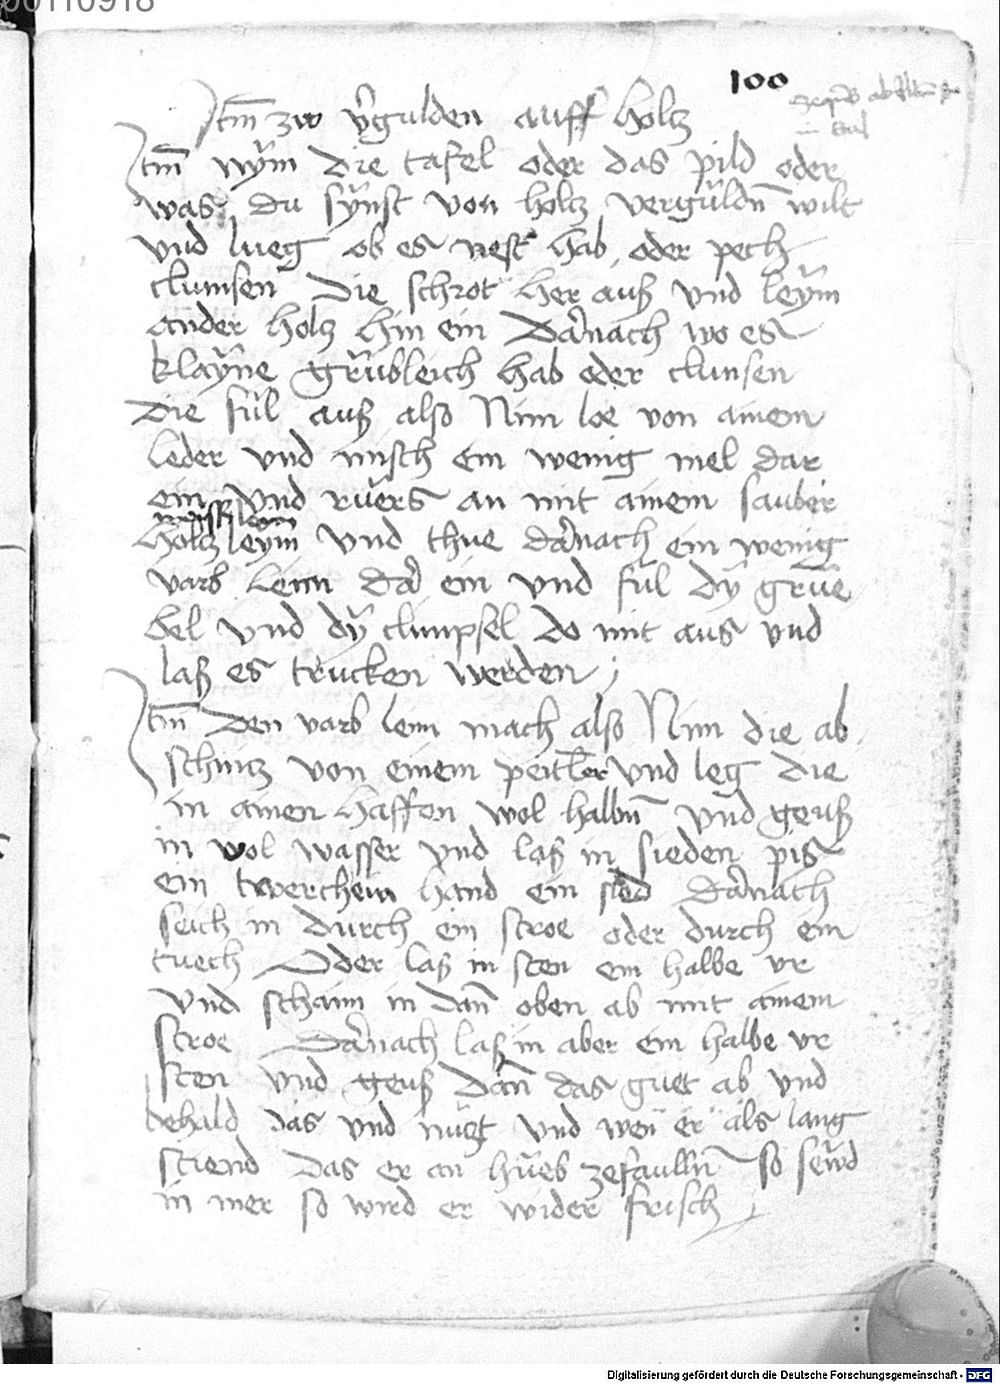 00110918
100
Itm zw vergulden auff holtz
Itm nym die tafel oder das pild oder
was du synst von holtz verguldn wilt
vnd lueg ob es nest hab oder pech
clumsen Die schrot her auß vnd leym
ander holtz hin ein Darnach wo es
klayne grubleich hab oder clunsen
die ful auß also Nim loe von ainem
leder vnd misch ein wenig mel dar
ein vnd ruers an mit ainem sauber
holtz leym vnd thue darnach ein wenig
varb leim dar ein vnd ful dy grue
bel vnd dy clumpsel do mit aus vnd
laß es trucken werden
Itm Den varb leim mach also Nim die ab
schnitz von einem peitler vnd leg die
in ainen haffen wol halbn vnd geuß
in vol wasser vnd laß in sieden pis
ein twerchein hand ein sied Darnach
seich in durch ein stroe oder durch ein
tuech Oder laß in sten ein halbe vr
vnd schaim in dan oben ab mit ainem
stroe Darnach laß in aber ein halbe vr
sten vnd geuß dan das guet ab vnd
behald das vnd nutzt vnd wen er als lang
stiend das er an hueb zefaulln so sewd
in mer so wird er wider frisch
Digitalisierung gefördert durch die Deutsche Forschungsgemeinschaft - DFG